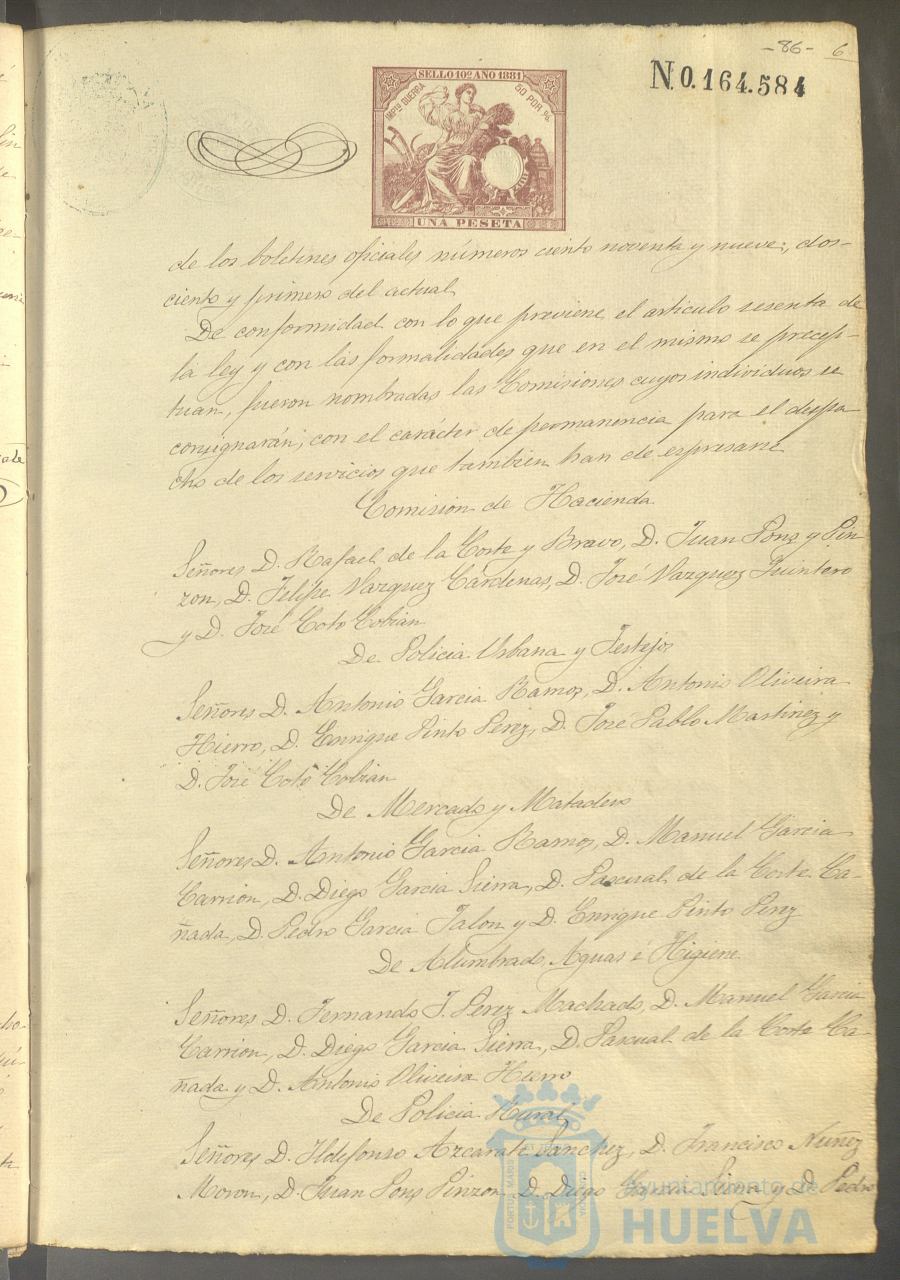 -86- 6
SELLO 10º AÑO 1881
IMPtº GUERRA
50 POR %
N.0.164.584
UNA PESETA
de los boletines oficiales números ciento noventa y nueve, dos-
ciento y primero del actual
De conformidad con lo que previene el articulo sesenta de
la ley y con las formalidades que en el mismo se precep-
tuan, fueron nombradas las Comisiones cuyos individuos se
consignarán, con el carácter de permanencia para el despa
cho de los servicios que tambien han de espresarse
Comision de Hacienda
Señores D. Rafael de la Corte y Bravo, D. Juan Pons y Pin
zon, D. Felipe Vazquez Cárdenas, D. José Vazquez Quintero
y D. José Coto Cobian
De Policia Urbana y Festejos
Señores D. Antonio Garcia Ramos, D. Antonio Oliveira
Hierro, D. Enrique Pinto Perez, D. José Pablo Martinez y
D. José Coto Cobian
De Mercado y Matadero
Señores D. Antonio Garcia Ramos, D. Manuel Garcia
Carrion, D. Diego Garcia Sierra, D. Pascual de la Corte Ca-
ñada, D. Pedro Garcia Jalon y D. Enrique Pinto Perez
De Alumbrado, Aguas é Higiene
Señores D. Fernando J. Perez Machado, D. Manuel Garcia
Carrion, D. Diego Garcia Sierra, D. Pascual de la Corte Ca-
ñada y D. Antonio Oliveira Hierro
De Policia Rural
Señores D. Ildefonso Azcarate Sanchez, D. Francisco Nuñez
Moron, D. Juan Pons Pinzon, D. Diego Garcia Sierra y D. Pedro
Ayuntamiento de
HUELVA